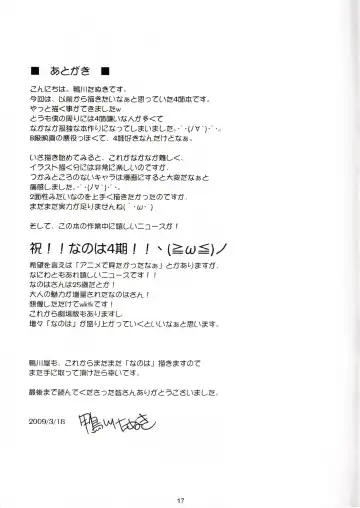 ■ あとがき ■
こんにちは、鴨川たぬきです。
今回は、以前から描きたいなぁと思っていた4期本です。
やっと描く事ができましたw
とうも僕の周りには4面嫌いな人が多くて
なかなか孤独な本作りになってしまいました。･ﾟ･(ノ∀`)･ﾟ･。
B級映画の悪役っぽくて、4話好きなんだけどなぁ。
いざ描き始めてみると、これがなかなか難しく、
イラスト描く分には非常に楽しいのですが、
つかみどころのないキャラは漫画にすると大変だなぁと
痛感しました。･ﾟ･(ノ∀`)･ﾟ･。
2面性みたいなのを上手く描きたかったのですが、
まだまだ実力が足りませんね(´･ω･`)
そして、この本の作業中に嬉しいニュースが！
祝！！なのは4期！！ヽ(≧ω≦)ノ
希望を言えば「アニメで見たかったなぁ」とかありますが、
なにわともあれ嬉しいニュースです！！
なのはさんは25歳だとか！
大人の魅力が増量されたなのはさん！
想像しただけでwktkです！
これから劇場版もありますし、
増々「なのは」が盛り上がっていくといいなぁと思います。
鴨川屋も、これからまだまだ「なのは」描きますので
また手に取って頂けたら幸いです。
最後まで読んでくださった皆さんありがとうございました。
2009/3/18 鴨川たぬき
17